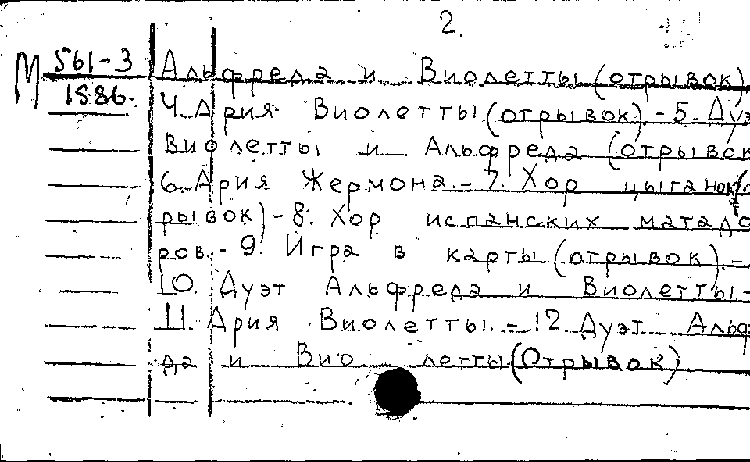 2.
М 561-3
1886.
Альфреда и Виолетты (отрывок)
4. Ария Виолетты (отрывок) - 5. Дуэ
Виолетты и Альфреда (отрывок
6. Ария Жермона. - 7. Хор цыганок (от
рывок) - 8. Хор испанских матадо
ров. - 9. Игра в карты (отрывок). -
10. Дуэт Альфреда и Виолетты -
11. Ария Виолетты. - 12. Дуэт Альф
да и Виолетты (Отрывок)